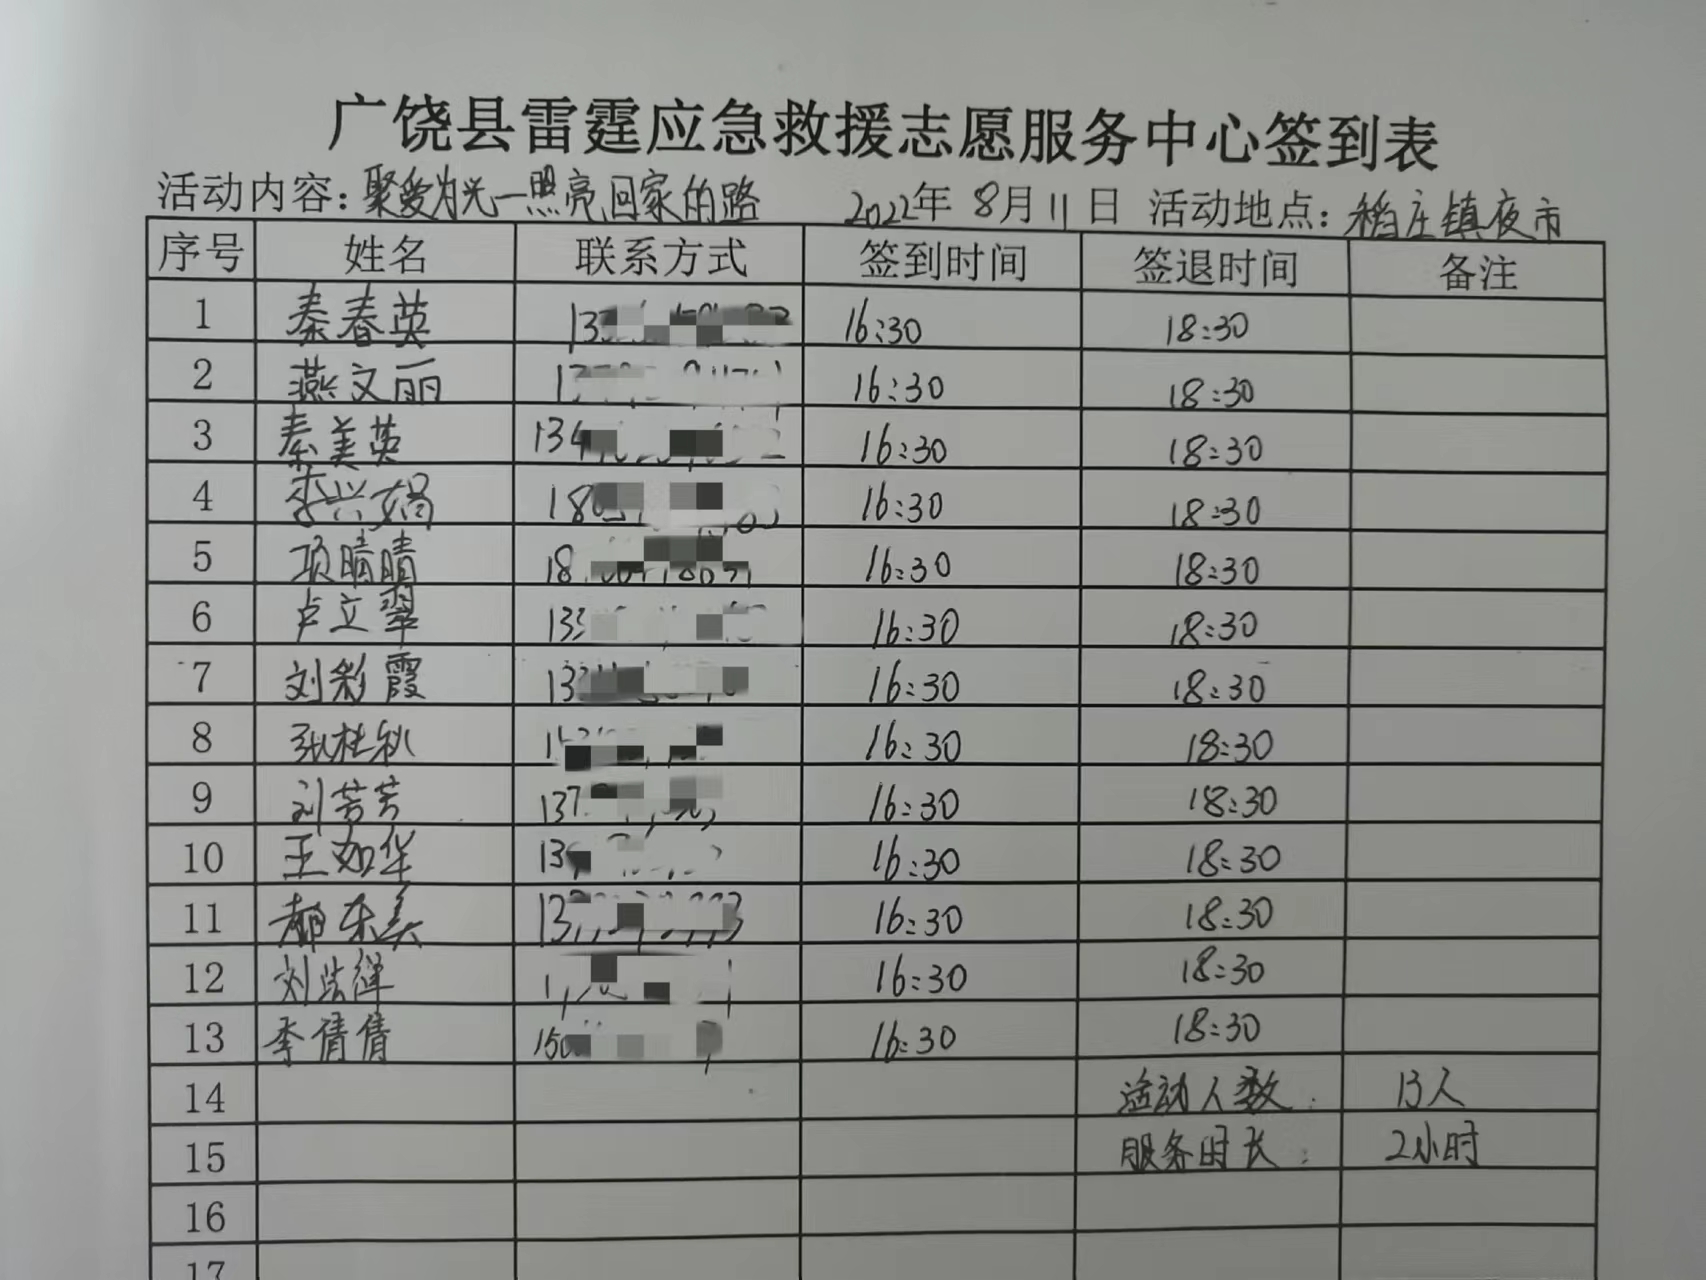 广饶县雷霆应急救援志愿服务中心签到表
活动内容：聚爱为光一照亮回家的路 2022年 8月 11日 活动地点：稻庄镇夜市
序号 姓名 联系方式 签到时间 签退时间 备注
1 秦春英 133 16:30 18:30
2 燕文丽 16:30 18:30
3 秦美英 134 16:30 18:30
4 李兴娟 180 16:30 18:30
5 项晴晴 18 16:30 18:30
6 卢立翠 133 16:30 18:30
7 刘彩霞 133 16:30 18:30
8 张桂秋 16:30 18:30
9 刘芳芳 137 16:30 18:30
10 王如华 13 16:30 18:30
11 东美 13 16:30 18:30
12 刘 16:30 18:30
13 李倩倩 150 16:30 18:30
14 活动人数： 13人
15 服务时长： 2小时
16
17